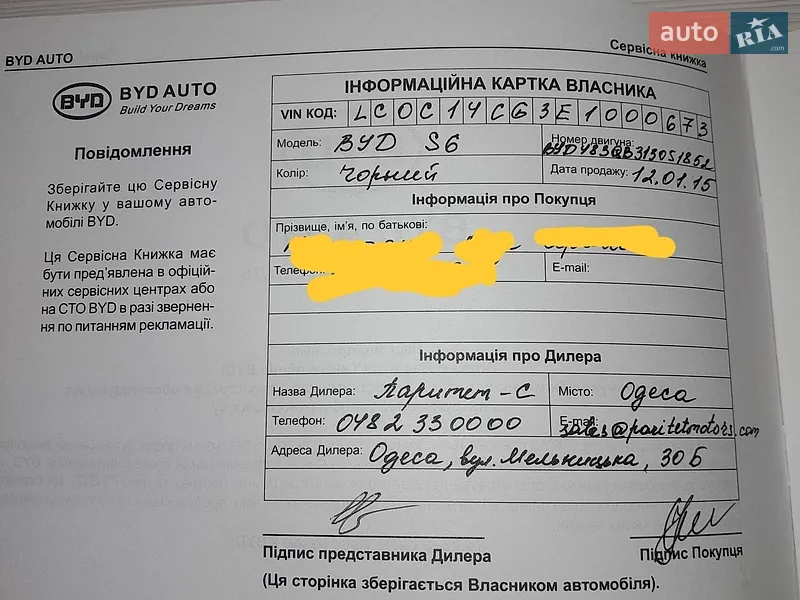 auto RIA .com
BYD AUTO
Сервісна книжка
BYD
BYD AUTO
Build Your Dreams
Повідомлення
Зберігайте цю Сервісну
Книжку у вашому авто-
мобілі BYD.
Ця Сервісна Книжка має
бути пред'явлена в офіцій-
них сервісних центрах або
на СТО BYD в разі звернен-
ня по питанням рекламації.
ІНФОРМАЦІЙНА КАРТКА ВЛАСНИКА
VIN КОД: LC0C14CG3E1000673
Модель: BYD S6
Номер двигуна:
BYD483QB313051852
Колір: Чорний
Дата продажу: 12.01.15
Інформація про Покупця
Прізвище, ім'я, по батькові:
Телефон:
E-mail:
Інформація про Дилера
Назва Дилера: Паритет-С
Місто: Одеса
Телефон: 0482 330000
E-mail:
sales@paritetmotors.com
Адреса Дилера: Одеса, вул. Мельницька, 30Б
Підпис представника Дилера
Підпис Покупця
(Ця сторінка зберігається Власником автомобіля).